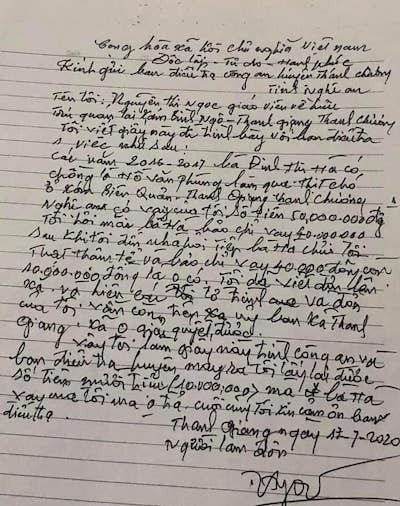 Cộng hòa xã hội chủ nghĩa Việt nam
Độc lập - Tự do - Hạnh phúc
Kính gửi ban điều tra công an huyện Thanh chương
Tỉnh Nghệ an
Tên tôi: Nguyễn thị Ngọc giáo viên về hưu
Trú quán tại Lam Đình Ngô - Thanh giang Thanh chương
Tôi viết giấy này để trình bày với ban điều tra
sự việc như sau:
Các năm 2016-2017 bà Đinh Thị Hà có
chồng là Hồ Văn Phùng làm quán thịt chó
ở xóm Kiên Quản, Thanh Giang Thanh chương
Nghệ an có vay của tôi số tiền 50.000.000đ
Tôi hỏi mãi bà Hà bảo chỉ vay 40.000000
Sau khi tôi đến nhà đòi tiền bà Hà chửi tôi
Thật thậm tệ và bảo chỉ vay 40.000 đồng còn
10.000.000, đồng là o có. Tôi đã viết đơn lên
xã, và hiện có tờ trình và đơn
của tôi vẫn còn trên xã uỷ ban xã Thanh
Giang. Xã o giải quyết được.
Vậy tôi làm giấy này trình công an và
ban điều tra huyện may ra tôi lấy lại được
số tiền mười triệu (10.000.000) mà bà Hà
vay của tôi mà o trả. cuối cùng tôi xin cảm ơn ban
điều tra.
Thanh Giang ngày 17-7-2020
Người làm đơn
Ngọc